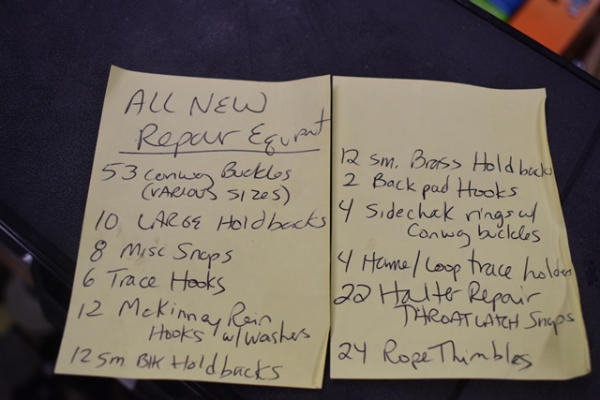 ALL NEW
Repair Equipment
53 Conway Buckles
(VARIOUS SIZES)
10 LARGE Holdbacks
8 Misc Snaps
6 Trace Hooks
12 McKinnay Rein
Hooks w/Washers
12 Sm Blk Holdbacks
12 sm. Brass Holdbacks
2 Back pad Hooks
4 Sidechek rings w/
Conway buckles
4 Hame/Loop trace holder
22 Halter Repair
THROATLATCH Snaps
24 Rope Thimbles